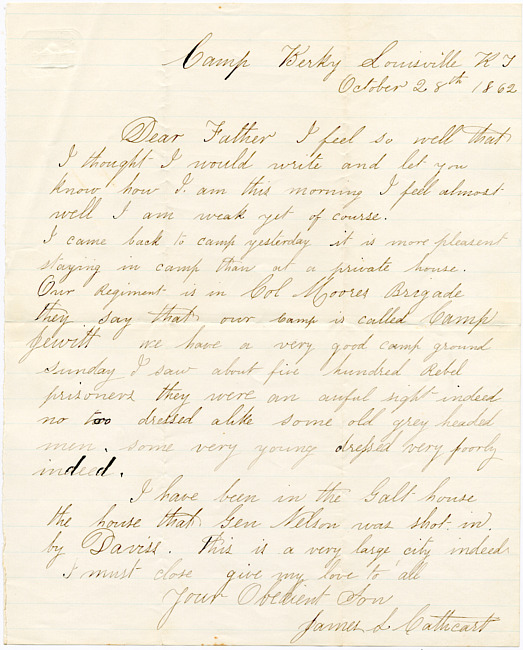 Camp Kerky Louisville K Y
October 28th 1862
Dear Father I feel so well that
I thought I would write and let you
know how I am this morning I feel almost
well I am weak yet of course.
I came back to camp yesterday it is more pleasent
staying in camp than at a private house.
Our Regiment is in Col Moores Brigade
they say that our camp is called Camp
Jewitt we have a very good camp ground
sunday I saw about five hundred Rebel
prisoners they were an auful sight indeed
no too dressed alike some old grey headed
men. some very young dressed very poorly
indeed.
I have been in the Galt house
the house that Gen Nelson was shot in
by Daviss. This is a very large city indeed
I must close give my love to all
Your Obedient Son
James L Cathcart